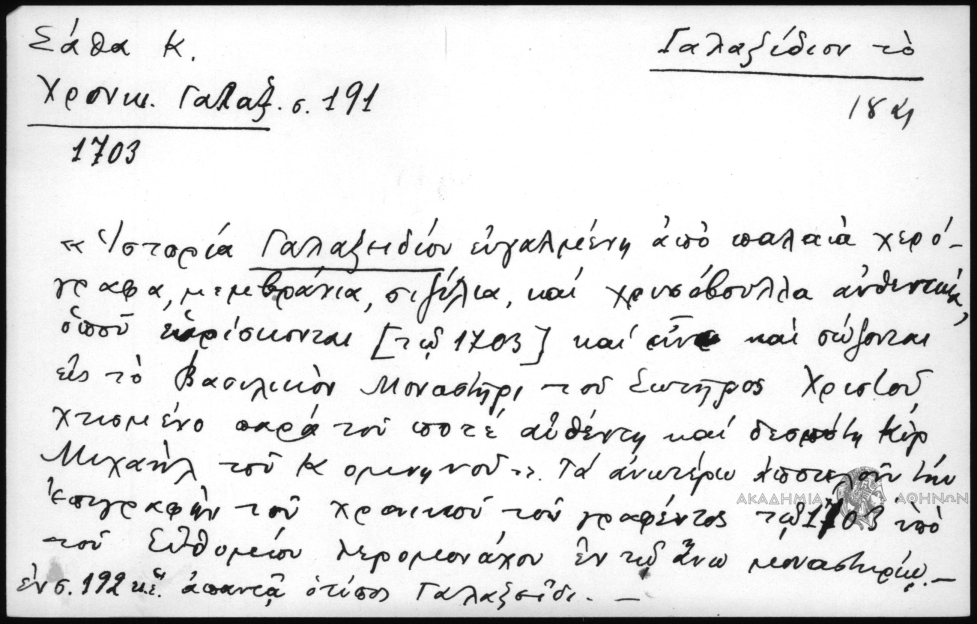 Σάθα Κ.
Γαλαξίδιον τὸ
Χρονικ. Γαλαξ. σ. 191
1703
« Ἱστορία Γαλαξειδίου εὐγαλμένη ἀπὸ παλαιὰ χερό-
γραφα, μεμβράνια, σιζίλια, καὶ χρυσόβουλλα αὐθεντικά,
ὁποῦ εὑρίσκονται [τῷ 1703] καὶ εἶναι καὶ σώζονται
εἰς τὸ Βασιλικὸν Μοναστῆρι τοῦ Σωτῆρος Χριστοῦ,
χτισμένο παρὰ τοῦ ποτὲ αὐθέντη καὶ δεσπότη Κὺρ
Μιχαὴλ τοῦ Κομνηνοῦ». Τὰ ἀνωτέρω ἀποτελοῦν τὴν
ΑΚΑΔΗΜΙΑ ΑΘΗΝΩΝ
ἐπιγραφὴν τοῦ χρονικοῦ τοῦ γραφέντος τῷ 1703 ὑπὸ
τοῦ Εὐθυμίου ἱερομονάχου ἐν τῷ ἄνω μοναστηρίῳ. –
ἐν σ. 192 κἑ. ἀπαντᾷ ὁ τύπος Γαλαξεῖδι. –